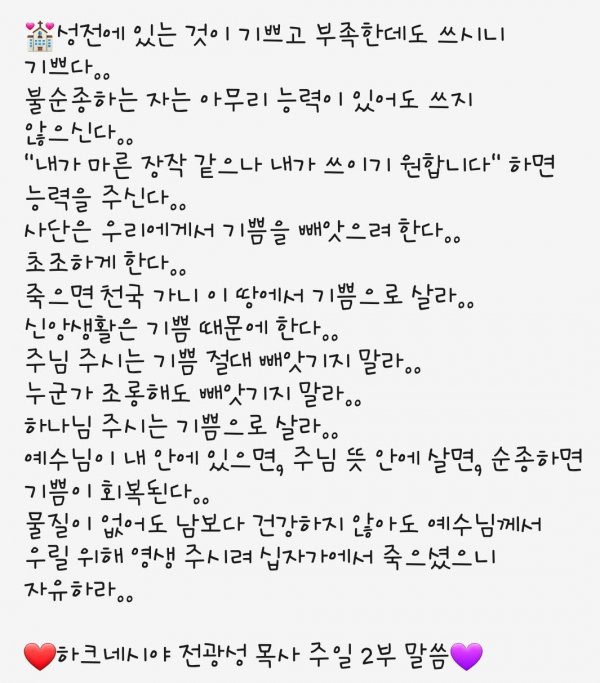 💒성전에 있는 것이 기쁘고 부족한데도 쓰시니
기쁘다。。
불순종하는 자는 아무리 능력이 있어도 쓰지
않으신다。。
"내가 마른 장작 같으나 내가 쓰이기 원합니다" 하면
능력을 주신다。。
사단은 우리에게서 기쁨을 빼앗으려 한다。。
초조하게 한다。。
죽으면 천국 가니 이 땅에서 기쁨으로 살라。。
신앙생활은 기쁨 때문에 한다。。
주님 주시는 기쁨 절대 빼앗기지 말라。。
누군가 조롱해도 빼앗기지 말라。。
하나님 주시는 기쁨으로 살라。。
예수님이 내 안에 있으면, 주님 뜻 안에 살면, 순종하면
기쁨이 회복된다。。
물질이 없어도 남보다 건강하지 않아도 예수님께서
우릴 위해 영생 주시려 십자가에서 죽으셨으니
자유하라。。
❤️하크네시야 전광성 목사 주일 2부 말씀💜